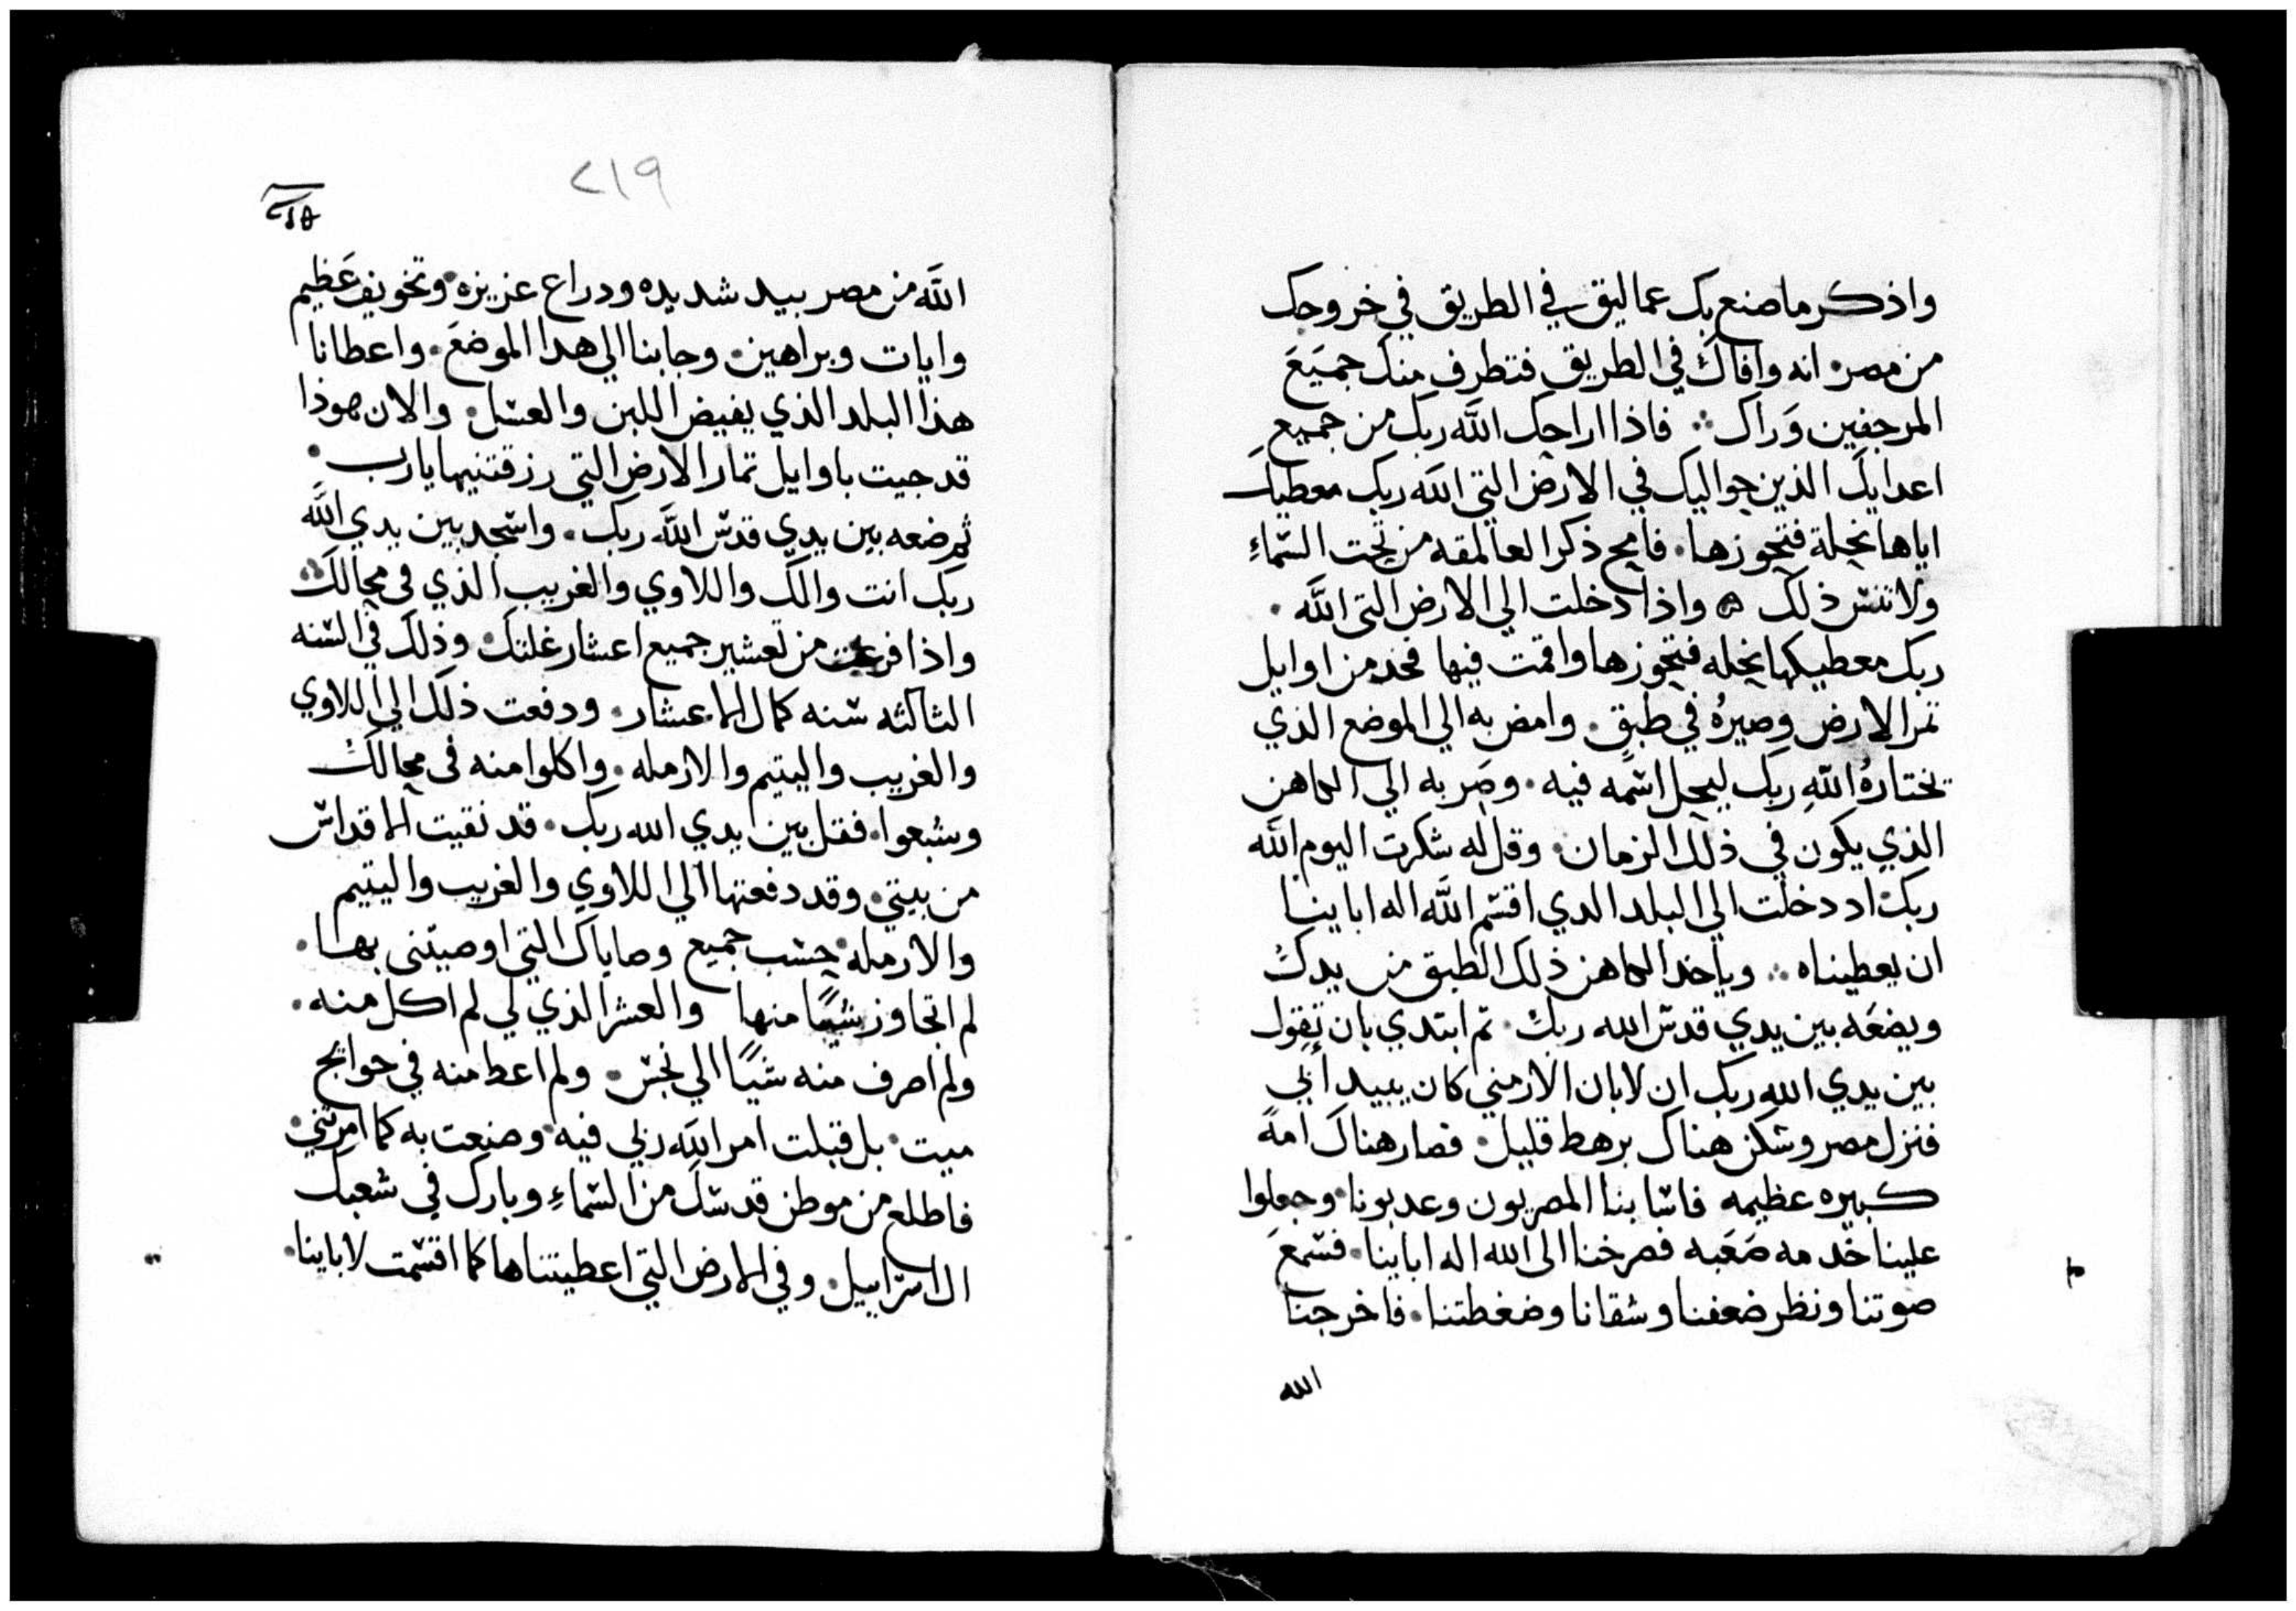 واذكر ما صنع بك عماليق في الطريق في خروجك
من مصر انه وافاك في الطريق فتطرف منك جميع
المرجفين وراك فاذا اراحك الله ربك من جميع
اعدايك الذين حواليك في الارض التي الله ربك معطيك
اياها نحلة فتحوزها فامح ذكر العمالقه من تحت السماء
ولا تنس ذلك واذا دخلت الي الارض التي الله
ربك معطيكها نحله فتحوزها واقمت فيها فخد من اوايل
ثمر الارض وصيره في طبق وامض به الي الموضع الذي
يختاره الله ربك ليحل اسمه فيه وصر به الي الكاهن
الذي يكون في ذلك الزمان وقل له شكرت اليوم الله
ربك اد دخلت الي البلد الدي اقسم الله اله اباينا
ان يعطيناه وياخد الكاهن ذلك الطبق من يدك
ويضعه بين يدي قدس الله ربك ثم ابتدي بان تقول
بين يدي الله ربك ان لابان الارمني كان يبيد ابي
فنزل مصر وسكن هناك برهط قليل فصار هناك امة
كبيره عظيمه فاسا بنا المصريون وعدبونا وجعلوا
علينا خدمه صعبه فصرخنا الى الله اله اباينا فسمع
صوتنا ونظر ضعفنا وشقانا وضغطتنا فاخرجنا
الله
٢١٩
الله من مصر بيد شديده ودراع عزيزه وتخويف عظيم
وايات وبراهين وجابنا الي هدا الموضع واعطانا
هذا البلد الذي يفيض اللبن والعسل والان هوذا
قد جيت باوايل تمار الارض التي رزقتنيها يارب
ثم ضعه بين يدي قدس الله ربك واسجد بين يدي الله
ربك انت والك واللاوي والغريب الذي في محالك
واذا فرغت من تعشير جميع اعشار غلتك وذلك في السنه
الثالثه سنه كمال الاعشار ودفعت ذلك الي اللاوي
والغريب واليتيم والارمله واكلوا منه في محالك
وشبعوا فقل بين يدي الله ربك قد نقيت الاقداس
من بيتي وقد دفعتها الي اللاوي والغريب واليتيم
والارمله حسب جميع وصاياك التي اوصيتني بها
لم اتجاوز شيًا منها والعشر الذي لي لم اكل منه
ولم اصرف منه شيًا الي نجس ولم اعط منه في حوايج
ميت بل قبلت امر الله ربي فيه وصنعت به كما امرتني
فاطلع من موطن قدسك من السماء وبارك في شعبك
ال اسراييل وفي الارض التي اعطيتناها كما اقسمت لاباينا